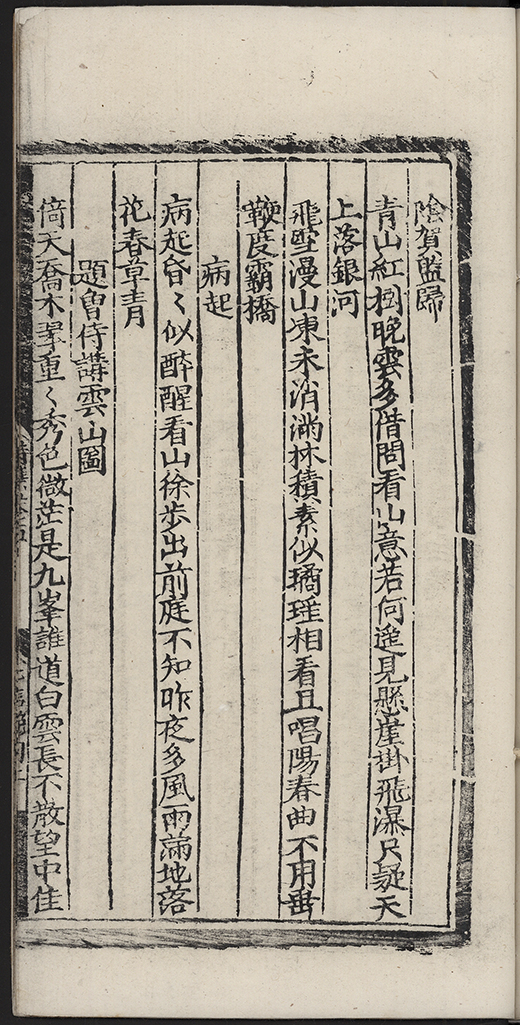 陰賀監歸
青山紅樹晚雲多借問看山意若何遙見懸崖掛飛瀑只疑天
上落銀河
飛雪漫山凍未消滿林積素似瓊瑤相看且唱陽春曲不用垂
鞭度霸橋
病起
病起昏〻似醉醒看山徐步出前庭不知昨夜多風雨滿地落
花春草青
題曾侍講雲山圖
倚天喬木翠重〻秀色微茫是九峯誰道白雲長不散望中佳